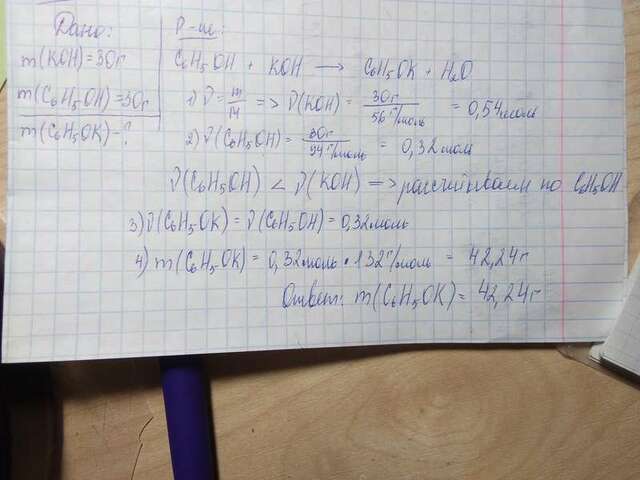 Дано:
m(KOH)=30г
m(C6H5OH)=30г
m(C6H5OK)-?
Р-ие:
C6H5OH + KOH → C6H5OK + H2O
1) ν = m/M => ν(KOH) = 30г/56 г/моль = 0,54моль
2) ν(C6H5OH) = 30г/94 г/моль = 0,32моль
ν(C6H5OH) < ν(KOH) => рассчитываем по C6H5OH
3) ν(C6H5OK) = ν(C6H5OH) = 0,32моль
4) m(C6H5OK) = 0,32моль • 132 г/моль = 42,24г
Ответ: m(C6H5OK) = 42,24г